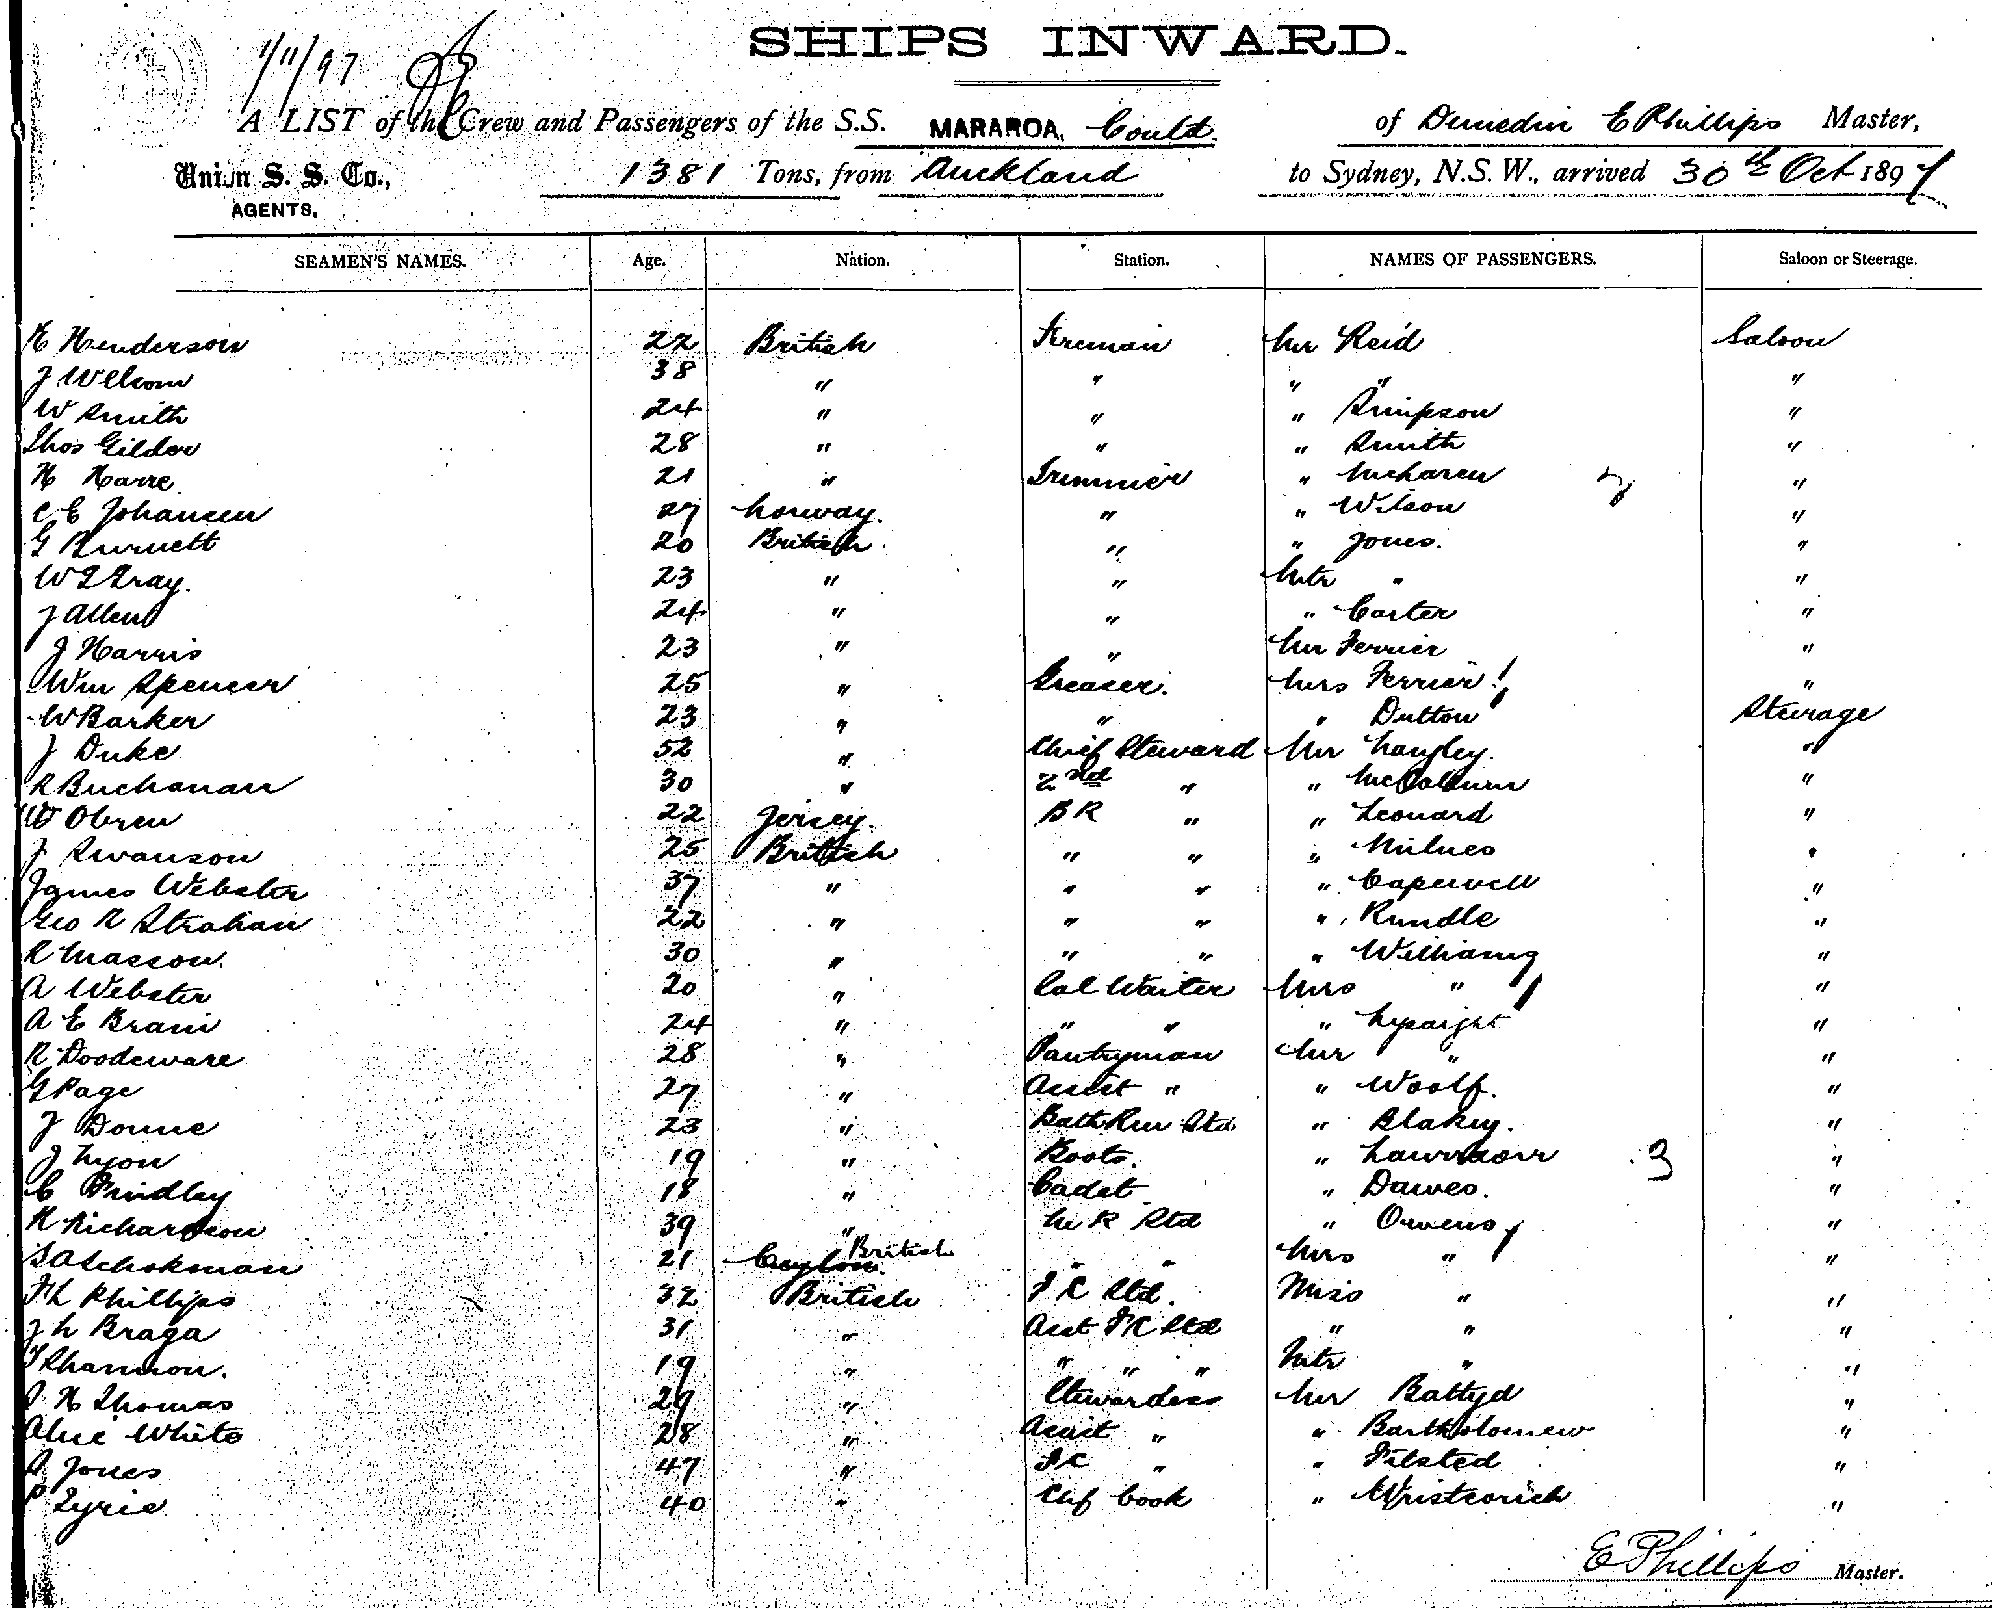 1/11/97
SHIPS INWARD.
A LIST of the Crew and Passengers of the S.S. MARAROA, Could. of Dunedin E Phillips Master,
Union S. S. Co., AGENTS, 1381 Tons, from Auckland to Sydney, N.S.W., arrived 30th Oct 1897
SEAMEN'S NAMES. Age. Nation. Station. NAMES OF PASSENGERS. Saloon or Steerage.
H Henderson 22 British Fireman Mr Reid Saloon
J Welsom 38 " " " " "
W Smith 24 " " " Simpson "
Thos Gilder 28 " " " Smith "
H Harre 21 " Trimmer " McLaren "
C E Johansen 27 Norway. " " Wilson "
G Burnett 20 British. " " Jones. "
W T Gray. 23 " " Mstr " "
J Allen 24 " " " Carter "
J Harris 23 " " Mr Ferrier "
Wm Spencer 25 " Greaser. Mrs Ferrier "
W Barker 23 " " " Dutton Steerage
J Duke 52 " Chief Steward Mr Langley. "
R Buchanan 30 " 2nd " " "
W Obren 22 Jersey. B R " " Leonard "
J Swanson 25 British " " " Milnes "
James Webster 37 " " " " Capewell "
Geo R Strahan 22 " " " " Rundle "
R Masson. 30 " " " " Williams "
A Webster 20 " Sal Waiter Mrs " "
A E Brain 24 " " " " Lysaight "
R Doodeware 28 " Pantryman Mr " "
G Page 27 " Assist " " Woolf. "
J Donne 23 " Bath Rm Std " Blakey. "
J Lyon 19 " Boots. " "
C Brindley 18 " Cadet " Dawes. "
H Richardson 39 " M R Std " Owens "
Schokman 21 Ceylon. British " " Mrs " "
F L Phillips 32 British F C Std. Miss " "
J L Braga 31 " Asst F C Std " " "
Shannon. 19 " " " " Mstr " "
H Thomas 29 " Stewardess Mr Battyd "
Alice White 28 " Assist " " Bartholomew "
A Jones 47 " F C " " Tilsted "
P Zyrie 40 " Chf Cook " "
E Phillips Master.